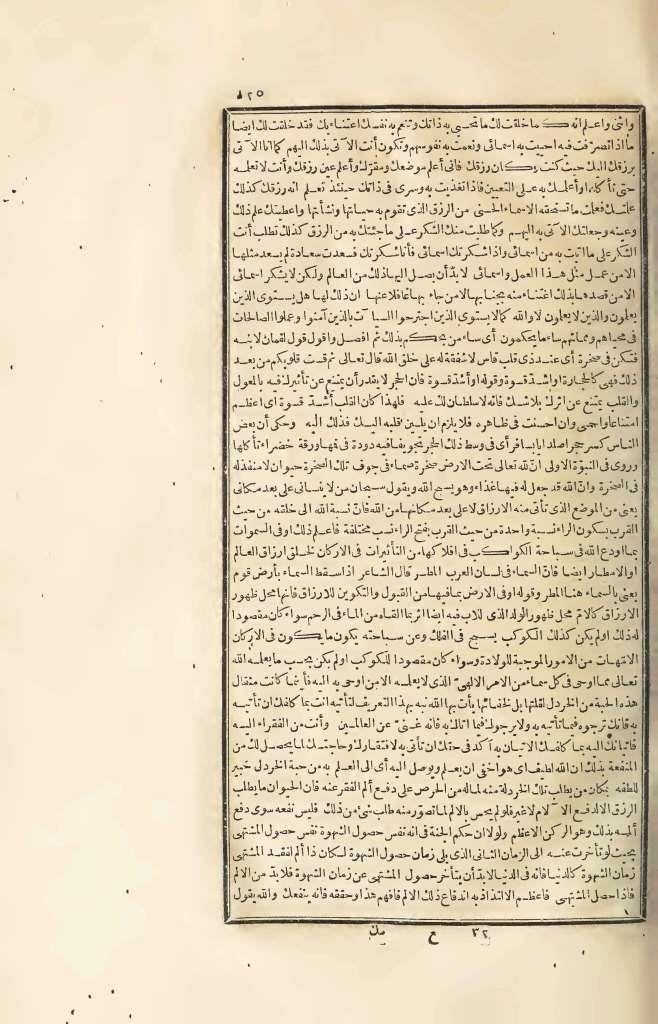 ١٢٥
واثنى واعلم انه كما خلقت لك ما تحيى به ذاتك وتنعم به نفسك اعتناء بك فقد خلقت لك ايضا
ما اذا تصرفت فيه احييت به اسمائى ونعمت به نفوسهم وتكون أنت الآتى بذلك اليهم كما انا الآتى
برزقك اليك حيث كنت وكان رزقك فانى أعلم موضعك ومقرّك وأعلم عين رزقك وأنت لا تعلمه
حتى تأكله أو أعلمك به على التعيين فاذا تغذيت به وسرى فى ذاتك حينئذ تعلم انه رزقك كذلك
علمتك فعلمت ما تستحقه الاسماء الحسنى من الرزق الذى تقوم به حياتها ونشأتها واعطيتك علم ذلك
وعينه وجعلتك الآتى به اليهم وكما طلبت منك الشكر على ما جئتك به من الرزق كذلك تطلب أنت
الشكر على ما أتيت به من اسمائى واذا شكرتك اسمائى فأنا شكرتك فسعدت سعادة لم يسعد مثلها
الا من عمل مثل هذا العمل واسمائى لابدّ أن يصل اليها ذلك من العالم ولكن لا يشكر اسمائى
الا من قصدها بذلك اعتناء منه بجنابها لا من جاء بها غافلا عنها ان ذلك لها هل يستوى الذين
يعلمون والذين لا يعلمون لا والله كما لا يستوى الذين اجترحوا السيآت بالذين آمنوا وعملوا الصالحات
فى محياهم ومماتهم ساء ما يحكمون أى ساء من يحكم بذلك ثم أفصل وأقول قول لقمان لابنه
فتكن فى صخرة أى عند ذى قلب قاس لا شفقة له على خلق الله قال تعالى ثم قست قلوبكم من بعد
ذلك فهى كالحجارة أو اشدّ قسوة وقوله أو أشدّ قسوة فان الحجر لا يقدر أن يمتنع عن تأثيرك فيه بالمعول
والقلب يمتنع عن اثرك بلا شك فانه لا سلطان لك عليه فلهذا كان القلب أشدّ قسوة أى اعظم
امتناعا وأحمى وان أحسنت فى ظاهره فلا يلزم ان يلين قلبه اليك فذلك اليه وحكى أن بعض
الناس كسر حجرا صلدا يابسا فرأى فى وسط ذلك الحجر تجويفا فيه دودة فى فمها ورقة خضراء تأكلها
وروى فى النبوّة الاولى انّ لله تعالى تحت الارض صخرة صماء فى جوف تلك الصخرة حيوان لا منفذ له
فى الصخرة وانّ الله قد جعل له فيها غذاء وهو يسبح الله ويقول سبحان من لا ينسانى على بعد مكانى
يعنى من الموضع الذى تأتى منه الارزاق لا على بعد مكانها من الله فانّ نسبة الله الى خلقه من حيث
القرب بسكون الراء نسبة واحدة من حيث القرب بفتح الراء نسب مختلفة فاعلم ذلك أو فى السموات
بما اودع الله فى سباحة الكواكب فى افلاكها من التأثيرات فى الاركان لخلق ارزاق العالم
او الامطار ايضا فانّ السماء فى لسان العرب المطر قال الشاعر اذا سقط السماء بأرض قوم
يعنى بالسماء هنا المطر وقوله او فى الارض بما فيها من القبول والتكوين للارزاق فانها محل ظهور
الارزاق كالامّ محل ظهور الولد الذى للاب فيه ايضا اثر بما القاه من الماء فى الرحم سواء كان مقصودا
له ذلك او لم يكن كذلك الكوكب يسبح فى الفلك وعن سباحته يكون ما يكون فى الاركان
الامّهات من الامور الموجبة للولادة وسواء كان مقصودا للكوكب او لم يكن بحسب ما يعلمه الله
تعالى مما أوحى فى كل سماء من الامر الالهىّ الذى لا يعلمه الا من اوحى به اليه فأينما كانت مثقال
هذه الحبة من الخردل لقلتها بل لخفائها يأت بها الله نبه بهذا التعريف لتأتيه أنت بما كلفك ان تأتيه
به فانك ترجوه فيما تأتيه به ولا يرجوك فيما أتاك به فانه غنىّ عن العالمين وأنت من الفقراء اليه
فاتيانك اليه بما كلفك الاتيان به آكد فى حقك ان تأتى به لافتقارك وحاجتك لما يحصل لك من
المنفعة بذلك ان الله لطيف اى هو اخفى ان يعلم ويوصل اليه أى الى العلم به من حبة الخردل خبير
للطفه بمكان من يطلب تلك الخردلة منه لما له من الحرص على دفع ألم الفقر عنه فان الحيوان ما يطلب
الرزق الا لدفع الآلام لا غير فلو لم يحس بالالم لما تصوّر منه طلب شئ من ذلك فليس نفعه سوى دفع
ألمه بذلك وهو الركن الاعظم ولولا ان حكم الجنة فى انه نفس حصول الشهوة نفس حصول المشتهى
بحيث لو تأخرت عنه الى الزمان الثانى الذى يلى زمان حصول الشهوة لكان ذا ألم لفقد المشتهى
زمان الشهوة كالدنيا فانه فى الدنيا لابدّ أن يتأخر حصول المشتهى عن زمان الشهوة فلابدّ من الالم
فاذا حصل المشتهى فاعظم الالتذاذ به اندفاع ذلك الالم فافهم هذا وحققه فانه ينفعك والله يقول
٣٢ ح مك